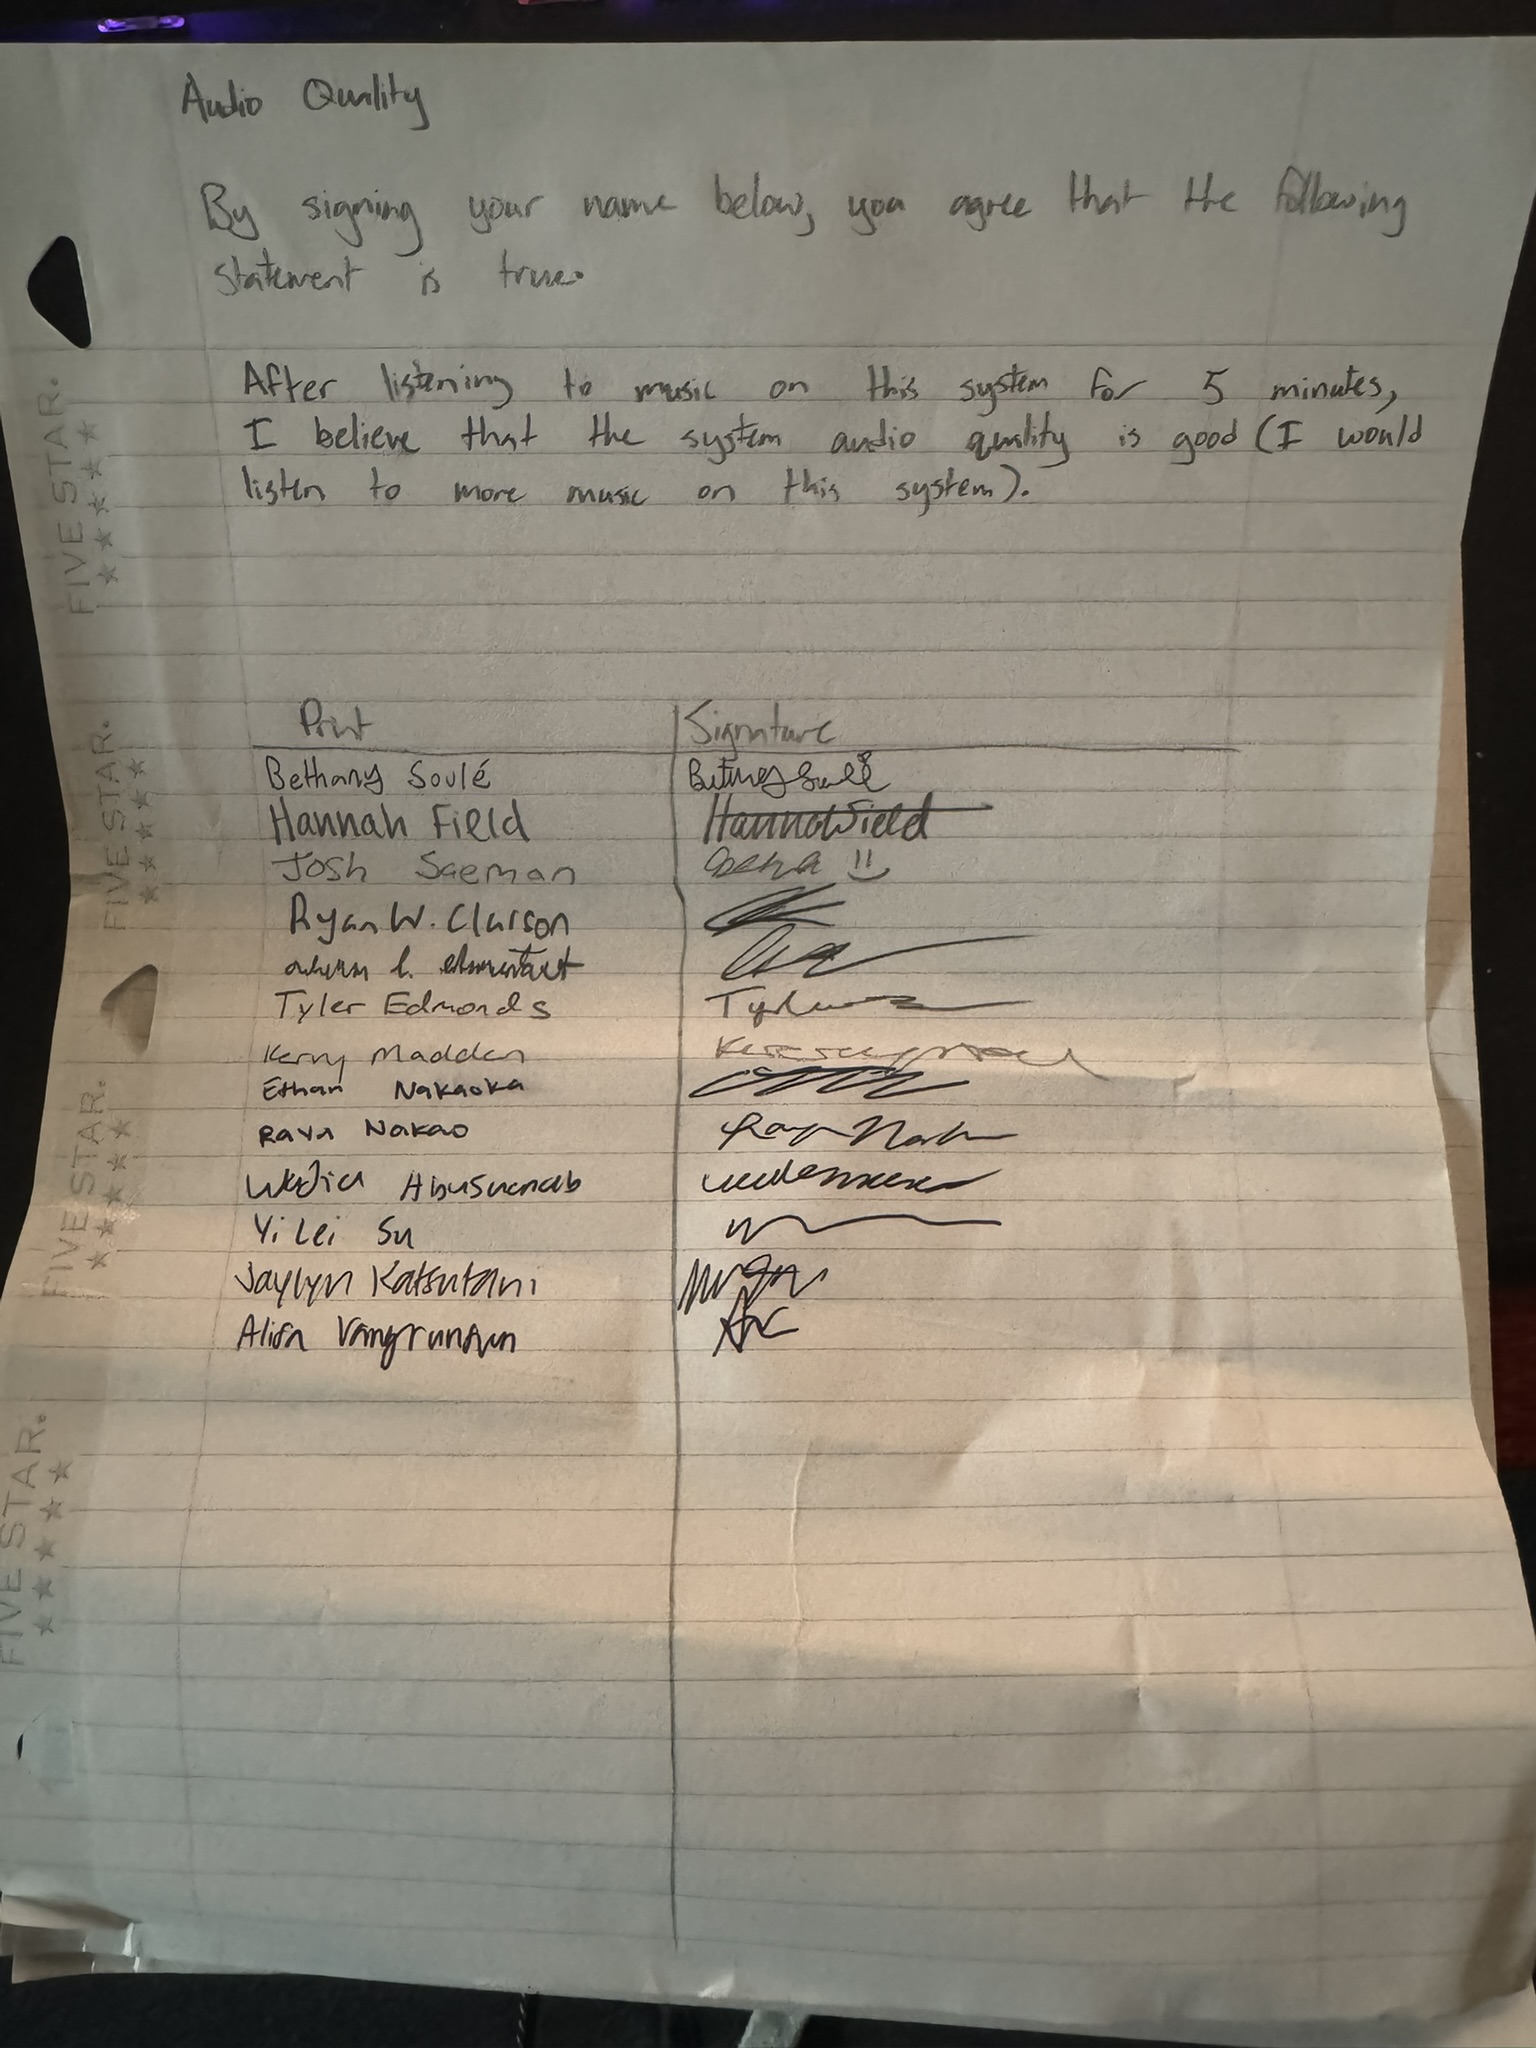 Audio Quality
By signing your name below, you agree that the following
statement is true.
After listening to music on this system for 5 minutes,
I believe that the system audio quality is good (I would
listen to more music on this system).
Print Signature
Bethany Soulé
Hannah Field Hannah Field
Josh Saeman
Ryan W. Clarson
Tyler Edmonds
Kerry Madden
Ethan Nakaoka
Nakao
Yi Lei Su
Jaylyn Katsutani
FIVE STAR.
FIVE STAR.
FIVE STAR.
FIVE STAR.